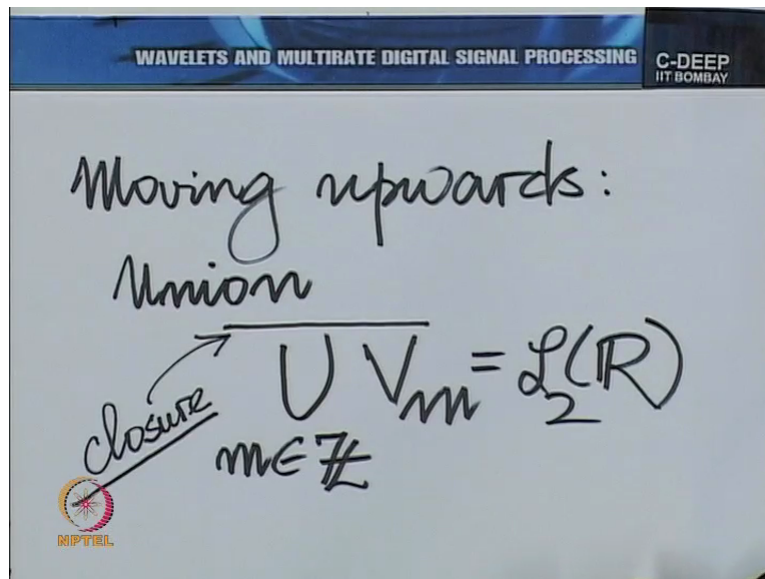 WAVELETS AND MULTIRATE DIGITAL SIGNAL PROCESSING
C-DEEP
IIT BOMBAY
Moving upwards:
Union
closure
⋃ Vₘ = ℒ₂(ℝ)
m∈ℤ
NPTEL